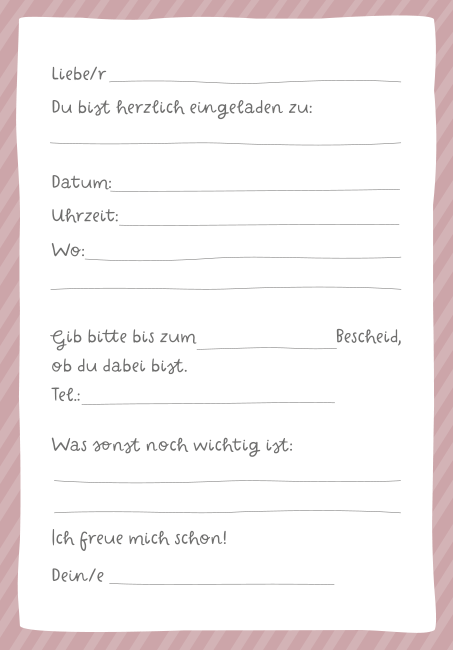 Liebe/r
Du bist herzlich eingeladen zu:
Datum:
Uhrzeit:
Wo:
Gib bitte bis zum Bescheid,
ob du dabei bist.
Tel.:
Was sonst noch wichtig ist:
Ich freue mich schon!
Dein/e